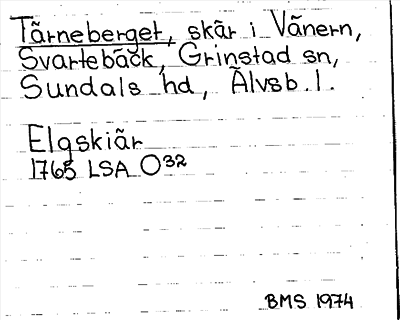 Tärneberget, skär i Vänern,
Svartebäck, Grinstad sn,
Sundals hd, Älvsb. l.
Elgskiär
1765 LSA O32
BMS 1974